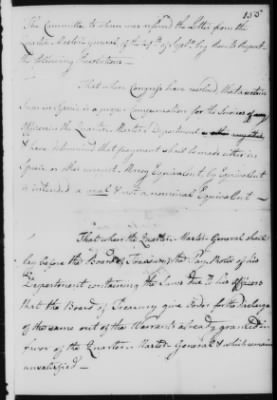 155
The Committee to whom was referred the Letter from the
Quarter Master general of the 29th of Septr. beg leave to Report
the following Resolutions —
That when Congress have resolved that a certain
Sum in Specie is a proper Compensation for the Services of any
Officer in the Quarter Master's Department
& have determined that payment shall be made either in
Specie or other current Money Equivalent, by Equivalent
is intended a real & not a nominal Equivalent —
That when the Quarter Master General shall
lay before the Board of Treasury the Pay Rolls of his
Department containing the Sums due to his Officers
that the Board of Treasury give Order for the discharge
of the same out of the Warrants already granted in
favor of the Quarter Master General & which remain
unsatisfied —